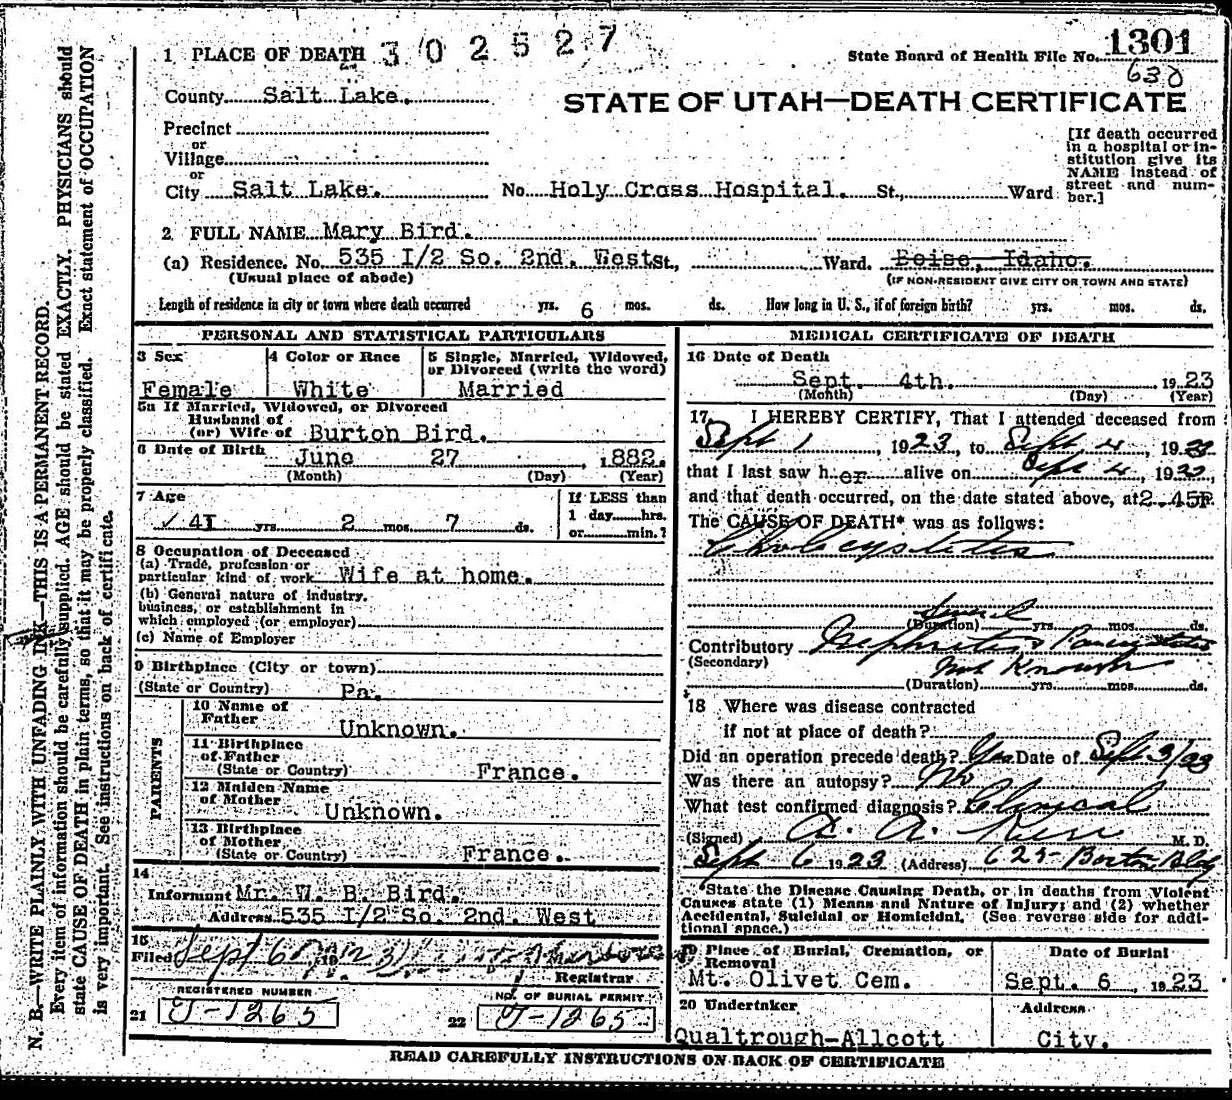 1 PLACE OF DEATH 302527
State Board of Health File No. 1301
630
County Salt Lake.
STATE OF UTAH—DEATH CERTIFICATE
Precinct
or
Village
or
City Salt Lake. No. Holy Cross Hospital. St., Ward
[If death occurred
in a hospital or in-
stitution give its
NAME instead of
street and num-
ber.]
2 FULL NAME Mary Bird.
(a) Residence. No. 535 I/2 So. 2nd. West St., Ward. Boise, Idaho.
(Usual place of abode) (IF NON-RESIDENT GIVE CITY OR TOWN AND STATE)
Length of residence in city or town where death occurred yrs. 6 mos. ds. How long in U. S., if of foreign birth? yrs. mos. ds.
PERSONAL AND STATISTICAL PARTICULARS
3 Sex
Female
4 Color or Race
White
5 Single, Married, Widowed,
or Divorced (write the word)
Married
5a If Married, Widowed, or Divorced
Husband of
(or) Wife of Burton Bird.
6 Date of Birth June 27, 1882.
(Month) (Day) (Year)
7 Age
41 yrs. 2 mos. 7 ds.
If LESS than
1 day......hrs.
or......min.?
8 Occupation of Deceased
(a) Trade, profession or
particular kind of work Wife at home.
(b) General nature of industry,
business, or establishment in
which employed (or employer)
(c) Name of Employer
9 Birthplace (City or town)
(State or Country) Pa.
PARENTS
10 Name of
Father
Unknown.
11 Birthplace
of Father
(State or Country) France.
12 Maiden Name
of Mother
Unknown.
13 Birthplace
of Mother
(State or Country) France.
14
Informant Mr. W. B. Bird.
Address 535 I/2 So. 2nd. West
15
Filed Sept 6 1923
Registrar
REGISTERED NUMBER
21 J-1265
NO. OF BURIAL PERMIT
22 J-1265
MEDICAL CERTIFICATE OF DEATH
16 Date of Death
Sept. 4th. 1923
(Month) (Day) (Year)
17 I HEREBY CERTIFY, That I attended deceased from
Sept 1, 1923, to Sept 4, 1923
that I last saw her alive on Sept 4, 1923,
and that death occurred, on the date stated above, at 2.45P
The CAUSE OF DEATH* was as follows:
Cholecystitis
(Duration) yrs. mos. ds.
Contributory Nephritis & Pancreatitis
(Secondary) Not Known
(Duration) yrs. mos. ds.
18 Where was disease contracted
if not at place of death?
Did an operation precede death? Yes Date of Sept 3/23
Was there an autopsy? No
What test confirmed diagnosis? Clinical
(Signed) A. A. Kerr M. D.
Sept 6 1923 (Address) 625 Boston Bldg
*State the Disease Causing Death, or in deaths from Violent
Causes state (1) Means and Nature of Injury; and (2) whether
Accidental, Suicidal or Homicidal. (See reverse side for addi-
tional space.)
19 Place of Burial, Cremation, or
Removal
Mt. Olivet Cem.
Date of Burial
Sept. 6, 1923
20 Undertaker
Qualtrough-Allcott
Address
City.
READ CAREFULLY INSTRUCTIONS ON BACK OF CERTIFICATE
N. B.—WRITE PLAINLY WITH UNFADING INK—THIS IS A PERMANENT RECORD.
Every item of information should be carefully supplied. AGE should be stated EXACTLY. PHYSICIANS should
state CAUSE OF DEATH in plain terms, so that it may be properly classified. Exact statement of OCCUPATION
is very important. See instructions on back of certificate.